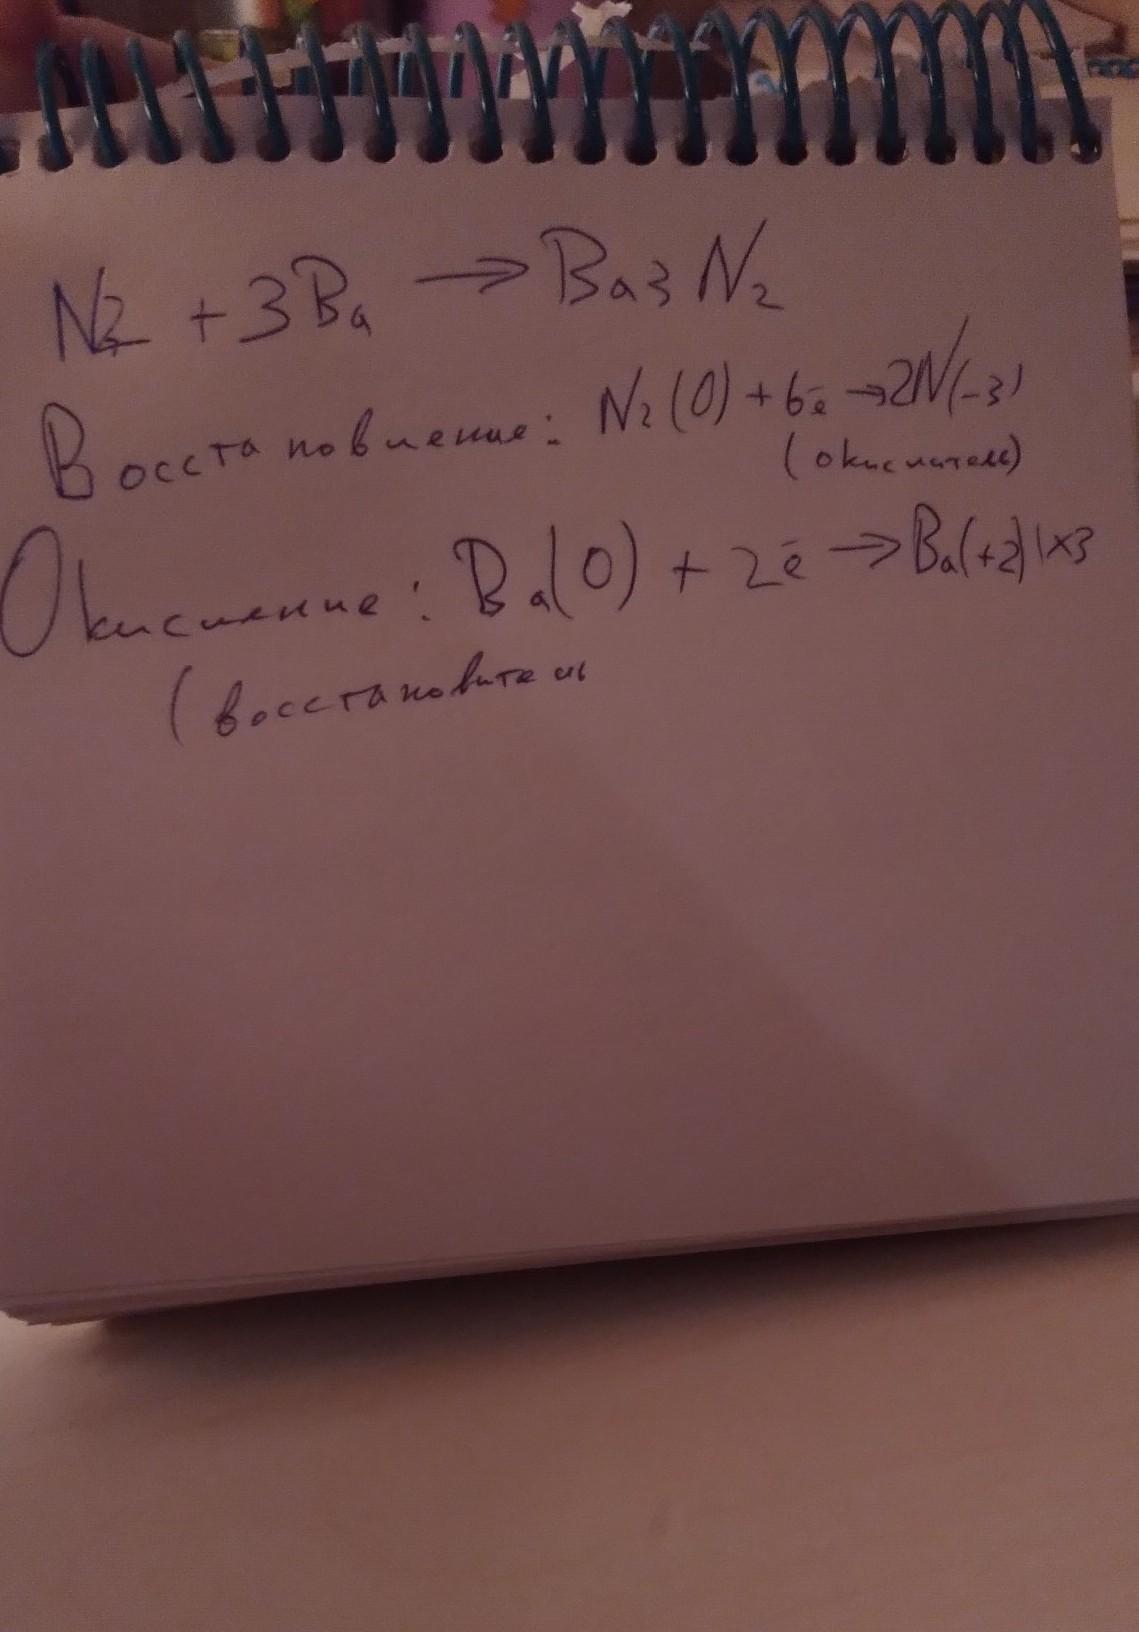 N2 + 3Ba → Ba3N2
Восстановление: N2(0) + 6ē → 2N(-3)
(окислитель)
Окисление: Ba(0) + 2ē → Ba(+2) | ×3
(восстановитель